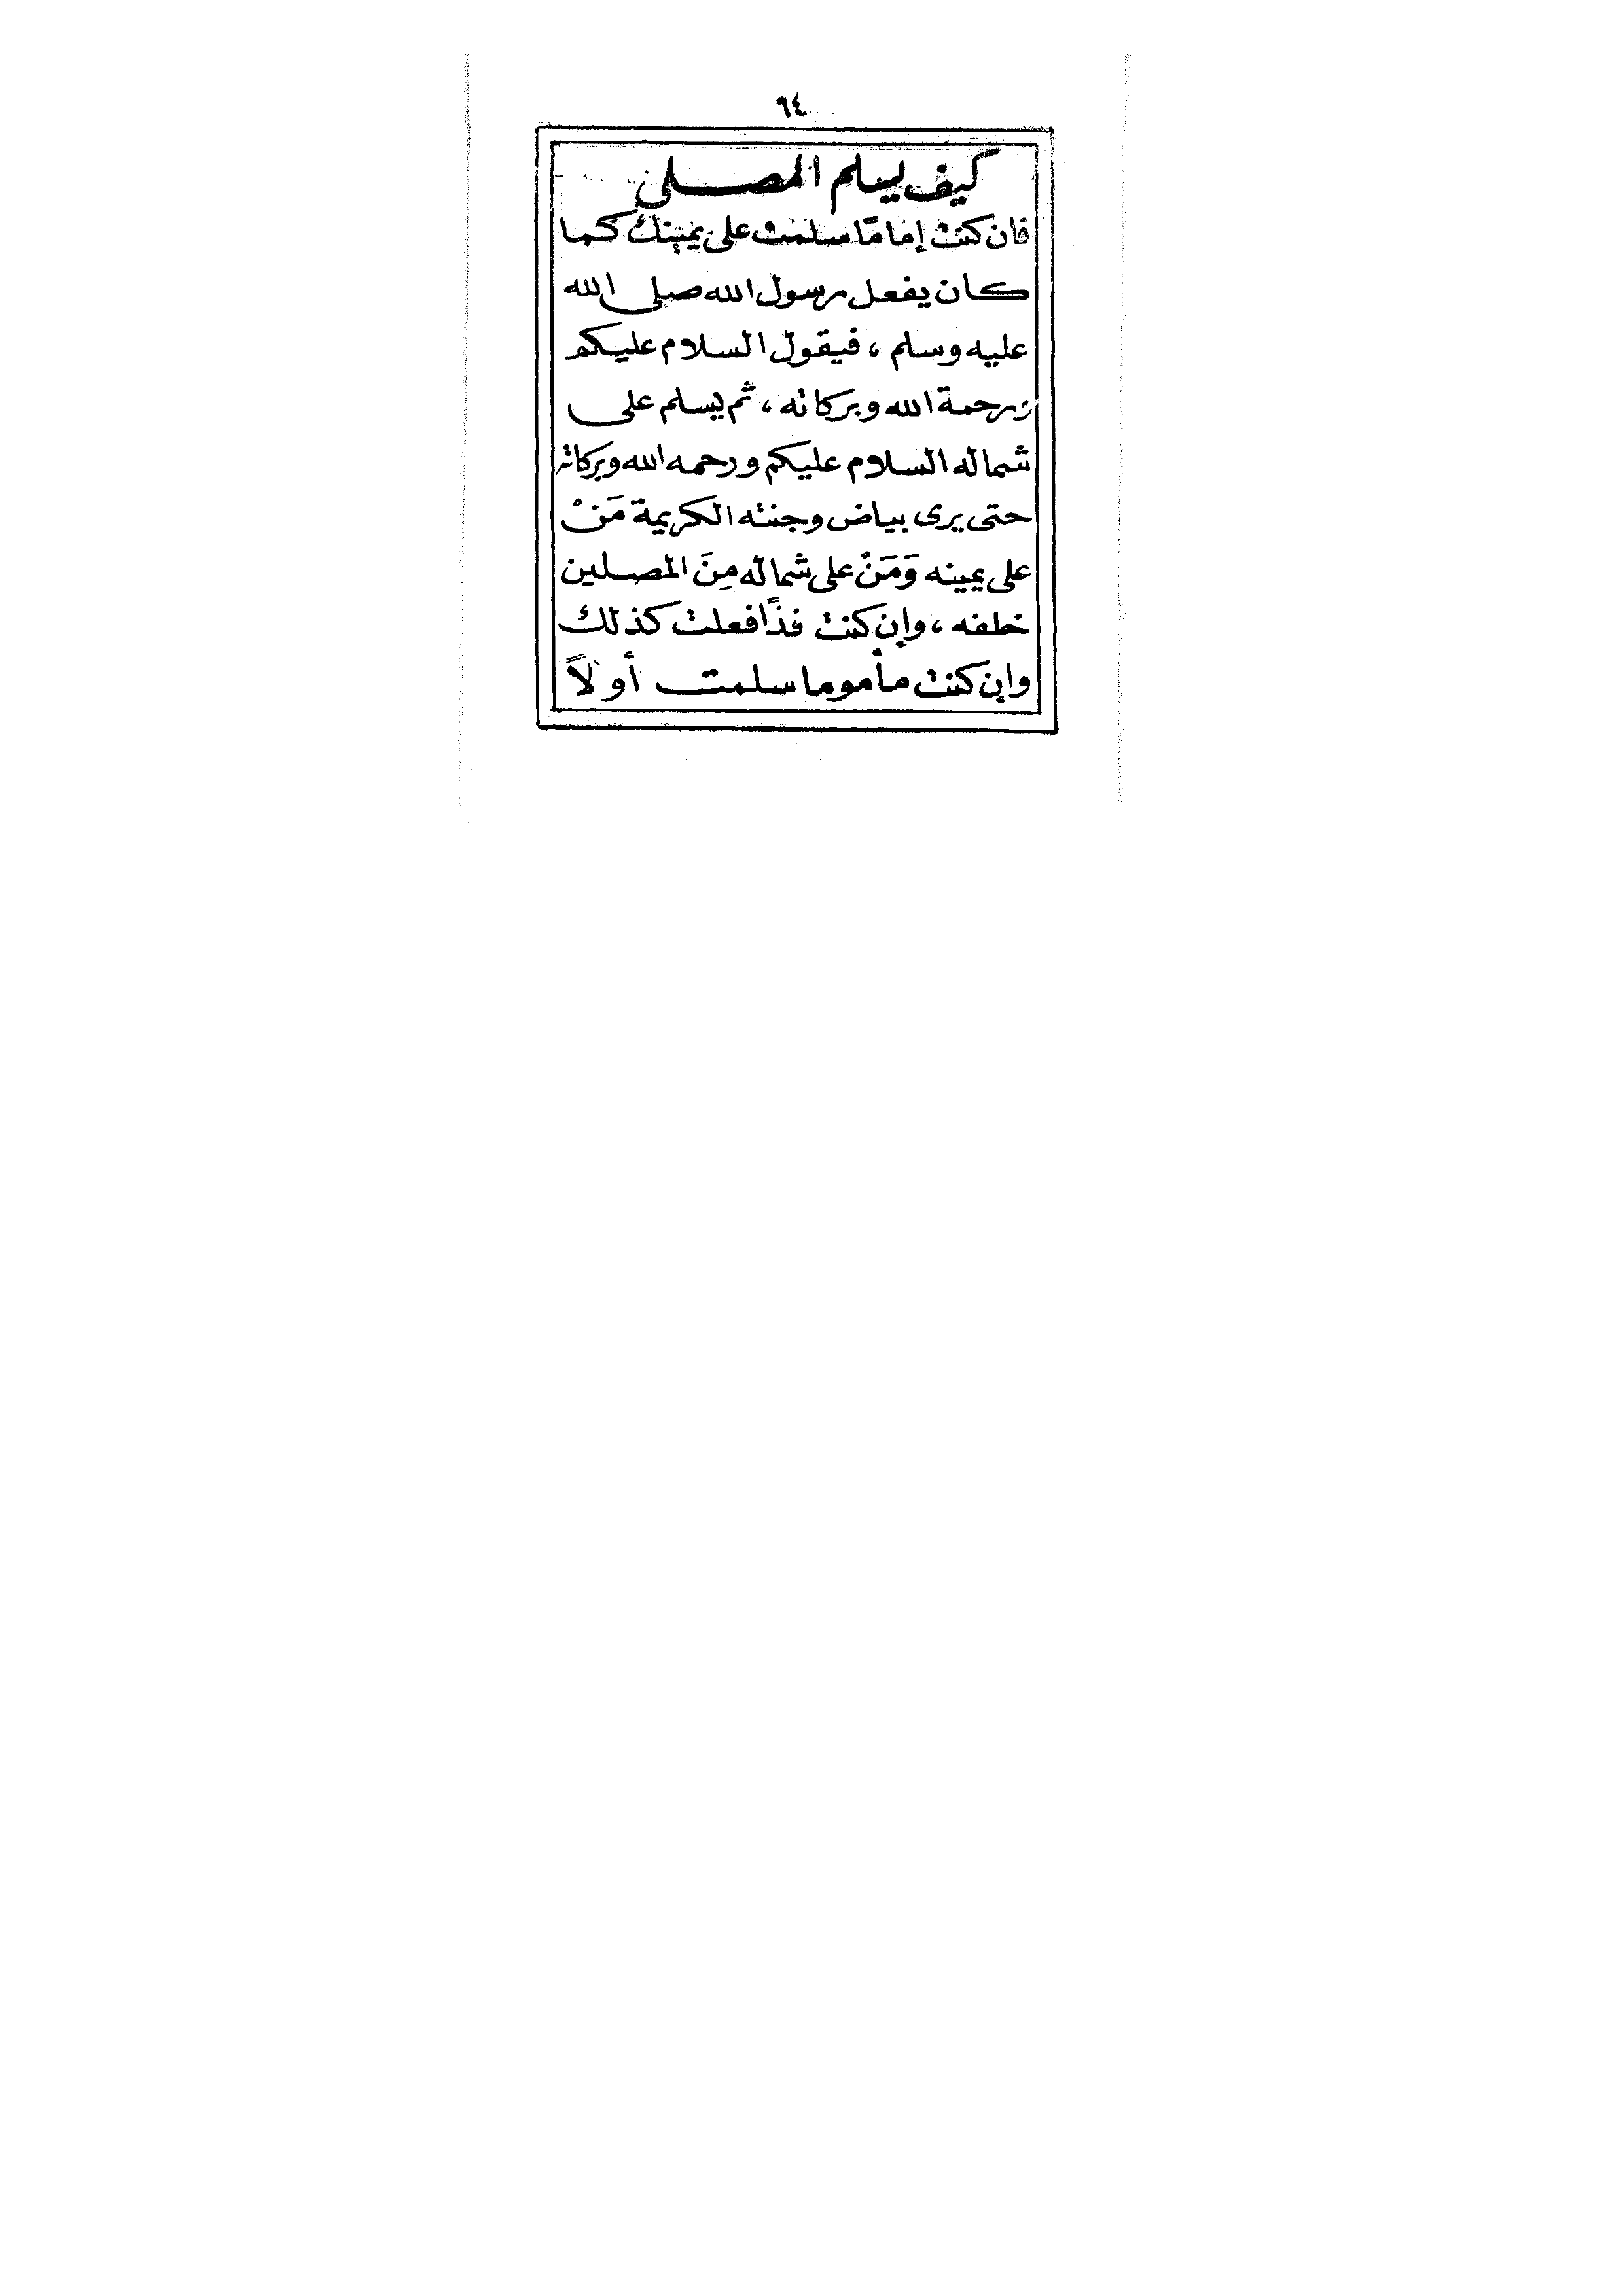 ٦٤
كيف يسلم المصلي
فان كنت إمامًا سلمت على يمينك كما
كان يفعل رسول الله صلى الله
عليه وسلم ، فيقول السلام عليكم
ورحمة الله وبركاته ، ثم يسلم على
شماله السلام عليكم ورحمه الله وبركاته
حتى يرى بياض وجنته الكريمة مَنْ
على يمينه وَمَنْ على شماله مِنَ المصلين
خلفه ، وإن كنت فذًا فعلت كذلك
وإن كنت مأموما سلمت أولاً